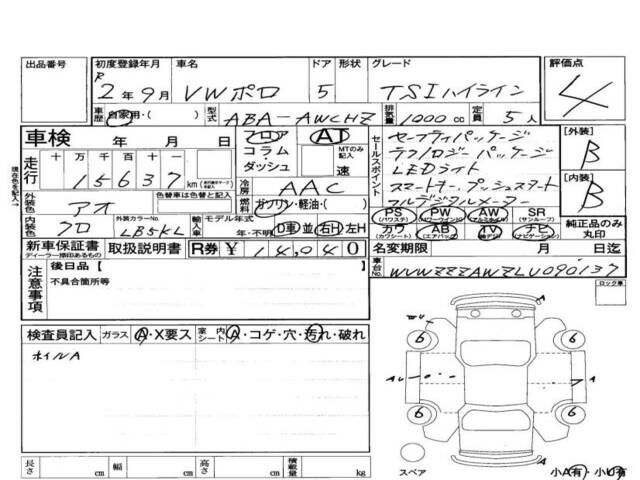 出品番号 初度登録年月 車名 ドア 形状 グレード 評価点
R 2年9月 VWポロ 5 TSIハイライン 4
車歴 自家用・( ) 型式 ABA-AWCHZ 排気量 1000cc 定員 5人
車検 年 月 日 フロア AT セールスポイント セーフティパッケージ [外装] B
コラム MTのみ記入 テクノロジーパッケージ
ダッシュ 速 LEDライト
現在色を記入→ 走行 十 万 千 百 十 一 15637 km 冷房 AAC スマートキー、プッシュスタート [内装] B
外装色 アオ 色替車は色替と記入 燃料 ガソリン・軽油・( ) フルデジタルメーター
内装色 クロ 外装カラーNo. LB5KL 輸入車 モデル年式 年・不明 D車 並 右H 左H
PS (パワステ) PW (パワーウインド) AW (アルミホイル) SR (サンルーフ)
カワ (カワシート) AB (エアバッグ) TV (純正テレビ) ナビ (ナビゲーション) 純正品のみ丸印
新車保証書 ディーラー捺印あるもの 取扱説明書 R券 ¥14,040 名変期限 月 日迄
注意事項 後日品【 車台No. WVWZZZAWZLU090137
不具合箇所等 ロック車
検査員記入 ガラス A・X要ス 室内シート A・コゲ・穴・汚れ・破れ
ホイルA
A
6 6
AU 7 A
6 6
A
スペア 小A有・小U有
長さ cm 幅 cm 高さ cm 積載量 kg